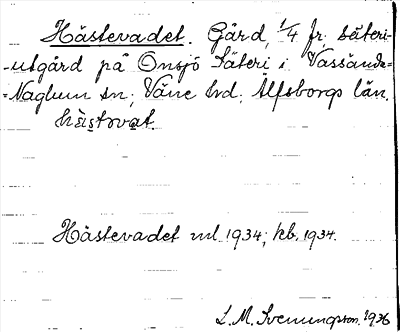 Hästevadet. Gård, 1/4 fr. säteri-
-utgård på Onsjö Säteri i Vassända-
-Naglum sn; Väne hd. Älfsborgs län.
hä̀stovat.
Hästevadet ml 1934; kb. 1934.
L. M. Svenungsson. 1936